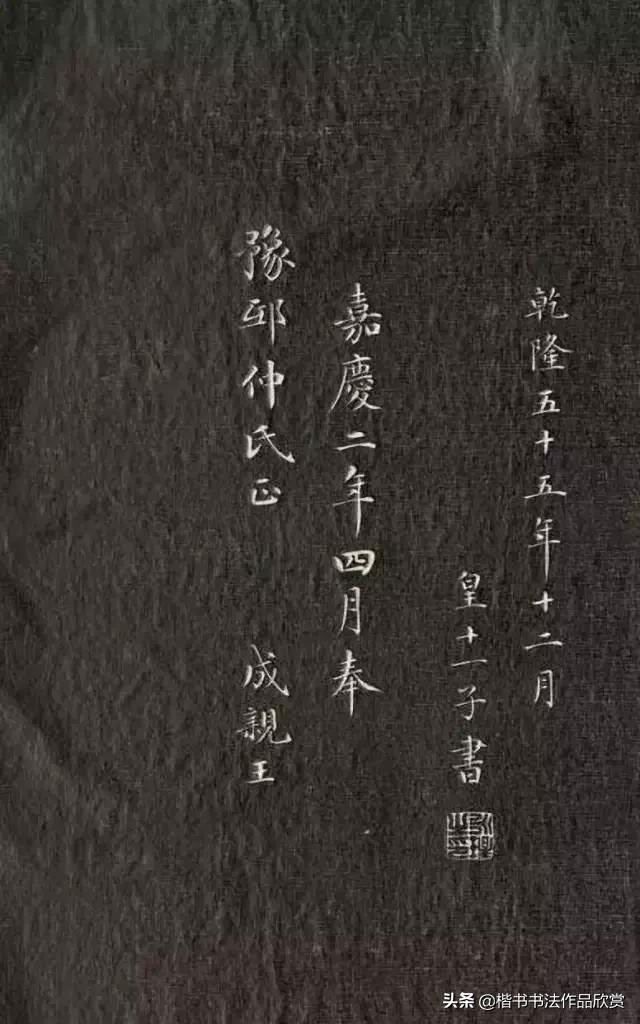 乾隆五十五年十二月
皇十一子書
永瑆之印
嘉慶二年四月奉
豫邸仲氏正 成親王
头条 @楷书书法作品欣赏